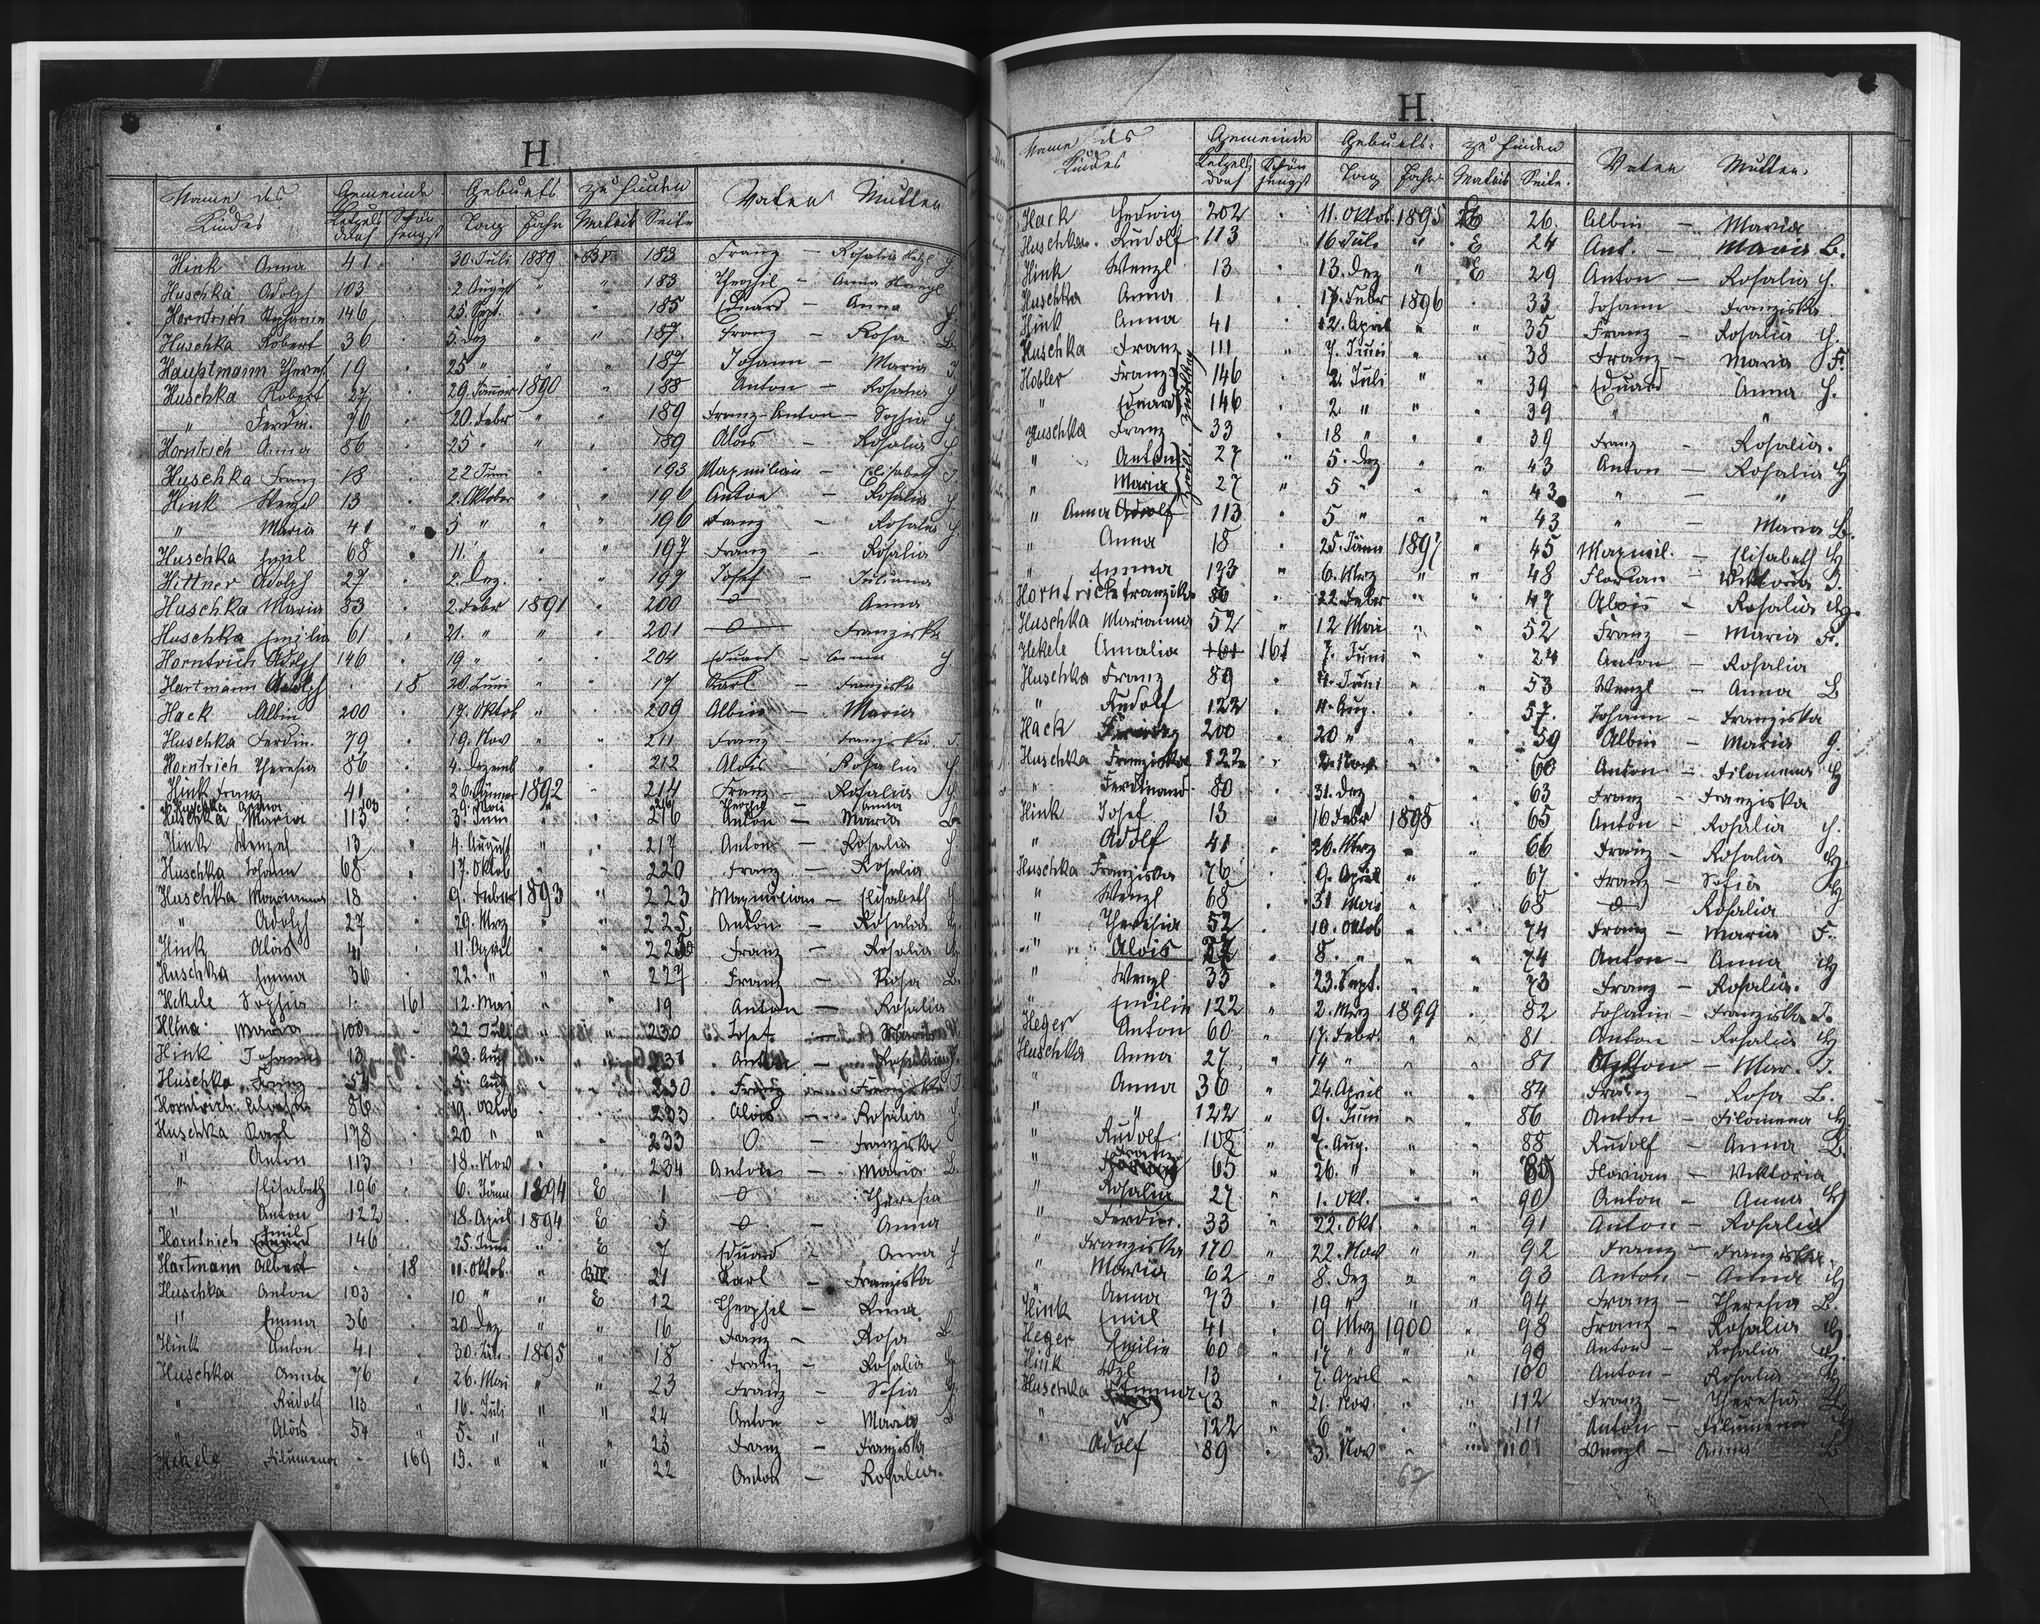 H.
Name des Kindes Gemeinde Geburts zu finden Vater Mutter
Ketzelsdorf Schönhengst Tag Jahr Matrik Seite
Hink Anna 41 30. Juli 1889 183 Franz – Rosalia
Huschka Adolph 103 2. August " " 183 Theophil – Anna
Horntrich Stephanie 146 25. Sept. " " 185 Eduard – Anna H
Huschka Robert 36 5. Dez " " 187. Franz – Rosa B.
Hauptmann Theres. 19 25 " " " 187 Johann – Maria
Huschka Robert 27 29. Jänner 1890 " 188 Anton – Rosalia H
" Ferdin. 76 20. Febr " " 189 Franz-Anton – Sophia H.
Horntrich Anna 86 25 " " " 189 Alois – Rosalia H
Huschka Franz 18 22 Juni " " 193 Maxmilian – Elisabeth
Hink Wenzel 13 2. Oktober " " 196 Anton – Rosalia H
" Maria 41 5 " " " 196 Franz – Rosalia H.
Huschka Emil 68 11. " " " 197 Franz – Rosalia
Hittner Adolph 27 2. Dez. " " 197 Josef – Juliana
Huschka Maria 83 2. Febr 1891 " 200 0 Anna
Huschka Emilia 61 21. " " " 201 0 Franziska
Horntrich Adolph 146 19 " " " 204 Eduard – Anna H
Hartmann Adolph 18 20. Juni " " 17 Karl – Franziska
Hack Albin 200 17. Oktob " " 209 Albin – Maria
Huschka Ferdin. 79 19. Nov " " 211 Franz – Franziska
Horntrich Theresia 86 4. Dezemb " " 212 Alois – Rosalia H
Hink Franz 41 26. Jänner 1892 " 214 Franz – Rosalia H
Huschka Anna 103 Theophil – Anna
Huschka Maria 113 3. Juni " " 216 Anton – Maria B.
Hink Wenzel 13 4. August " " 217 Anton – Rosalia H
Huschka Johann 68 17. Oktob " " 220 Franz – Rosalia
Huschka Marianna 18 9. 1893 " 223 Maxmilian – Elisabeth H
" Adolph 27 20. Mrz " " 225 Anton – Rosalia H
Hink Alois 41 11. April " " Franz – Rosalia H
Huschka Emma 36 22. " " " 227 Franz – Rosa B.
Hekele Sophia 161 12. Mai " 19 Anton – Rosalia
Maria 22 Juli " 230 Josef
Hink Johann 13 23. Aug " " 231 Anton – Rosalia
Huschka Franz 54 5. Aug " " 230 Franz – Franziska
Horntrich 86 19. Oktob " " 233 Alois – Rosalia H
Huschka Karl 178 20 " " " 233 0 – Franziska
" Anton 113 18. Nov " " 234 Anton – Maria B.
" Elisabeth 196 6. Jänn 1894 E 1 0 – Theresia
" Anton 122 18. April 1894 E 5 0 – Anna
Horntrich Emil 146 25. Juni " E 7 Eduard – Anna H
Hartmann Albert 18 11. Oktob. " 21 Karl – Franziska
Huschka Anton 103 10 " " E 12 Theophil – Anna
" Emma 36 20 Dez " " 16 Franz – Rosa B
Hink Anton 41 30. Jän. 1895 " 18 Franz – Rosalia H
Huschka 76 26. Mai " " 23 Franz – Sofia H
" Rudolf 113 16. Juli " " 24 Anton – Maria B
" Alois 54 5. " " " 23 Franz – Franziska
Hekele Filumena 169 13. " " " 22 Anton – Rosalia.
H.
Name des Kindes Gemeinde Geburts- zu finden Vater Mutter
Ketzelsdorf Schönhengst Tag Jahr Matrik Seite.
Hack Hedwig 202 11. Oktob. 1895 E 26. Albin – Maria
Huschka Rudolf 113 16 Juli " E 24 Ant. – Maria B.
Hink Wenzl 13 13. Dez " E 29 Anton – Rosalia H.
Huschka Anna 1 Febr 1896 33 Johann – Franziska
Hink Anna 41 12. April " " 35 Franz – Rosalia H.
Huschka Franz 111 7. Juni " " 38 Franz – Maria F.
Hobler Franz 146 2. Juli " " 39 Eduard Anna H.
" Eduard 146 2 " " " 39 " "
Huschka Franz 33 18 " " " 39 Franz – Rosalia.
" Anton 27 5. Dez " " 43 Anton – Rosalia H
" Maria 27 5 " " " 43 " – "
" Anna Adolf 113 5 " " " 43 " – Maria B.
" Anna 18 25. Jänn 1897 " 45 Maxmil. – Elisabeth H
" Emma 173 6. Mrz " " 48 Florian – Viktoria
Horntrich Franziska 86 22. Febr " " 47 Alois – Rosalia H.
Huschka Marianna 52 12 Mai " " 52 Franz – Maria F.
Hekele Amalia 161 161 7. Juni " " 24 Anton – Rosalia
Huschka Franz 89 Juni " " 53 Wenzl – Anna B
" Rudolf 122 Aug. " " 57. Johann – Franziska
Hack 200 20 " " " 59 Albin – Maria G.
Huschka Franziska 122 Nov. " " 60 Anton – Filomena H
" Ferdinand 80 31. Dez " " 63 Franz – Franziska
Hink Josef 13 16 Febr 1898 " 65 Anton – Rosalia H.
" Adolf 41 26. Mrz " " 66 Franz – Rosalia H.
Huschka Franziska 76 9. April " " 67 Franz – Sofia H
" Wenzl 68 31 Mai " " 68 0 Rosalia
" Theresia 52 10. Oktob " " 74 Franz – Maria F.
" Alois 27 8. " " " 74 Anton – Anna H
" Wenzl 33 23. Sept. " " 73 Franz – Rosalia.
" Emilie 122 2. Mrz 1899 " 82 Johann – Franziska
Heger Anton 60 17. Febr. " " 81 Anton – Rosalia H
Huschka Anna 27 14 " " " 81 Anton – Mar.
" Anna 36 24. April " " 84 Franz – Rosa B.
" " 122 9. Juni " " 86 Anton – Filomena H.
" Rudolf 108 7. Aug. " " 88 Rudolf – Anna B.
" Franz 65 26. " " " 89 Florian – Viktoria
" Rosalia 27 1. Okt. " " 90 Anton – Anna H
" Ferdin. 33 22. Okt " " 91 Anton – Rosalia
" Franziska 170 22. Nov " " 92 Franz – Franziska
" Maria 62 8. Dez " " 93 Anton – Anna H
" Anna 73 19 " " " 94 Franz – Theresia B.
Hink Emil 41 9. Mrz 1900 " 98 Franz – Rosalia H.
Heger Emilie 60 17 " " " 99 Anton – Rosalia H.
Hink Wzl 13 7. April " " 100 Anton – Rosalia H
Huschka Emma 73 21. Nov. " " 112 Franz – Theresia B.
" " 122 6 " " " 111 Anton – Filumena H
" Adolf 89 3. Nov " " 110 Wenzl – Anna B
62